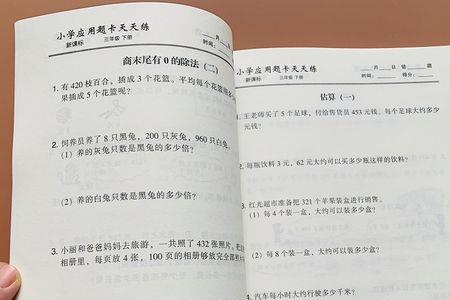 小学应用题卡天天练
新课标 三年级 下册
月 日
时间:
商末尾有0的除法(二)
1. 有420枝百合,插成3个花篮。平均每个花篮
果插成5个花篮呢?
2. 饲养员养了8只黑兔,200只灰兔,960只白兔。
(1) 养的灰兔只数是黑兔的多少倍?
(2) 养的白兔只数是黑兔的多少倍?
3. 小丽和爸爸妈妈去旅游,一共照了432张照片。把
相册里,每页放4张,100页的相册够放完全部
小学应用题卡天天练
新课标 三年级 下册
月 日 错 题
时间: 得分:
估算(一)
1. 王老师买了5个足球,付给售货员453元钱。每个足球大约多少
元钱?
2. 每瓶饮料3元,62元大约可以买多少瓶这样的饮料?
3. 红光超市准备把321个苹果装盒进行销售。
(1) 每4个装一盒,大约可以装多少盒?
(2) 每8个装一盒,大约可以装多少盒?
4. 汽车每小时大约行驶多少千米?